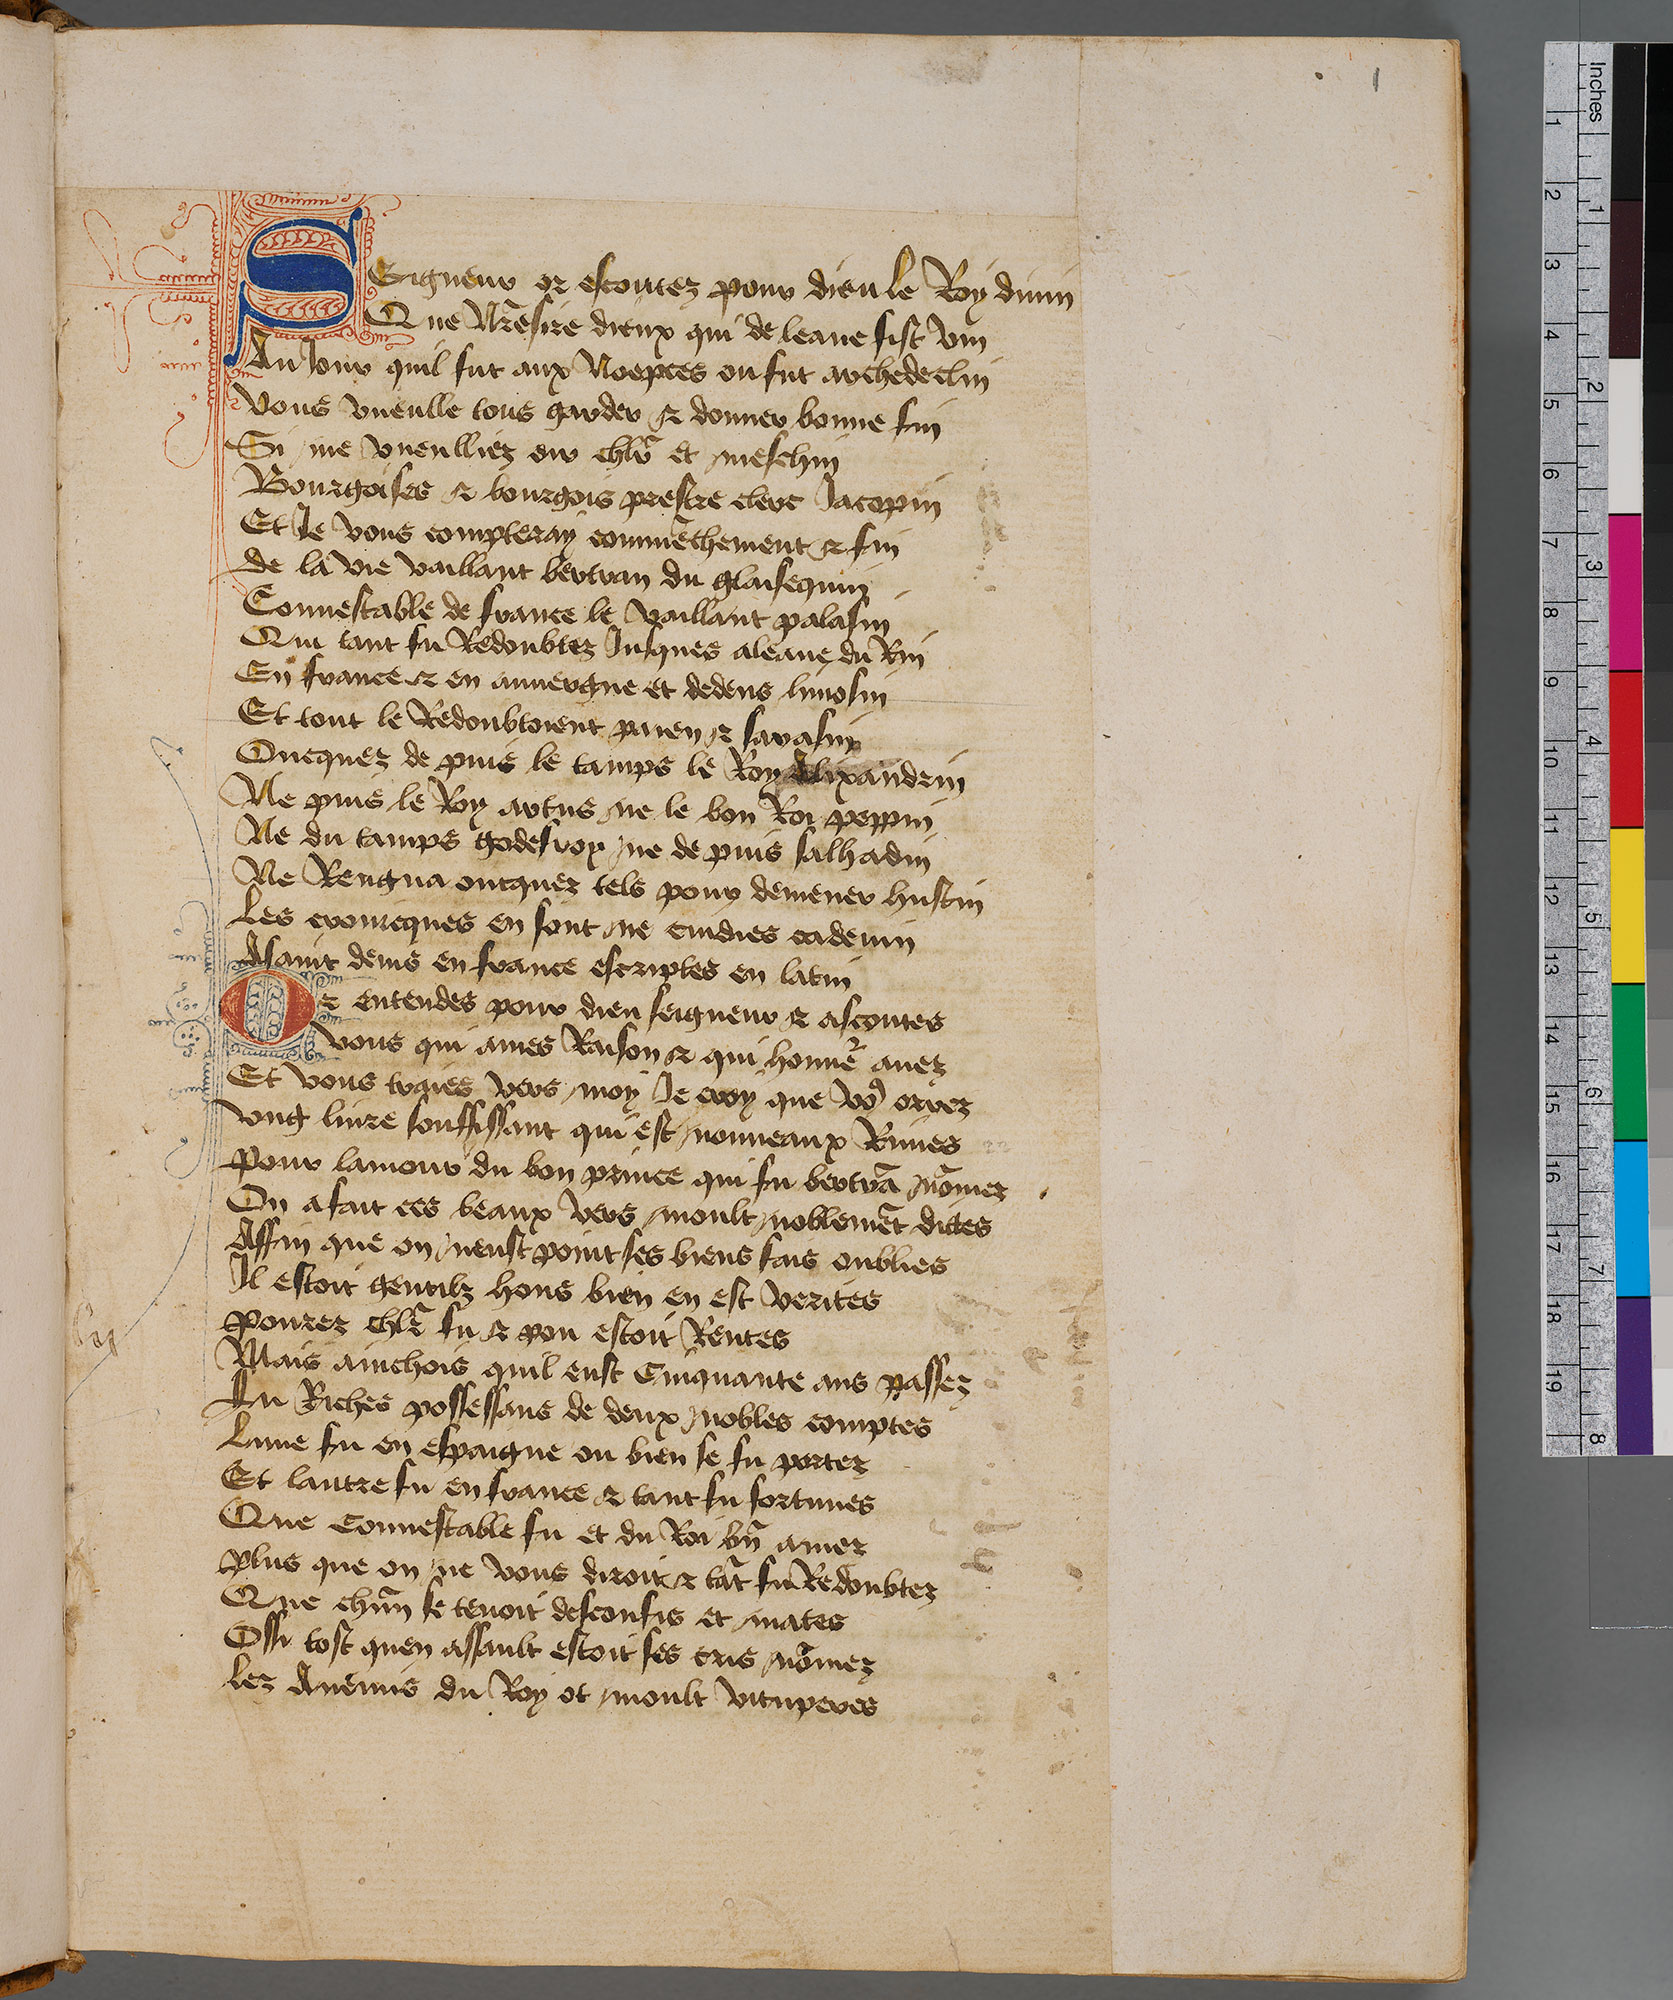 1
Seigneur or escoutez pour dieu le Roy diuin
Que Nr̃esire dieux qui de leaue fist vin
Au Jour quil fut aux Noepces ou fut archedeclin
Vous vueulle tous garder & donner bonne fin
Si me vueulliez oir chlr̃ et meschin
Bourgoises & bourgois prestre clerc Jacopin
Et Je vous compteray commẽchement & fin
de la vie vaillant bertran du glaisequin
Connestable de france le vaillant palasin
Qui tant fu Redoubtez Jusques aleaue du Rin
En france & en auuergne et dedens limosin
Et tout le Redoubtoient paien & sarasin
Oncquez de puis le tamps le Roy Alixandrin
Ne puis le Roy artus ne le bon Roi peppin
Ne du tamps godefroy ne de puis salhadin
Ne Rengna oncquez tels pour demener hustin
Les cronicques en sont ne cuidies cadeuin
Asaint denis en france escriptes en latin
Or entendes pour dieu seigneur & ascoutes
Vous qui ames Raison & qui honnẽr auez
Et vous traies vers moy Je croy que vo9 orrez
Vng liure souffissant qui est nouueaux Rimes
Pour lamour du bon prince qui fu bertrã nõmez
On a fait ces beaux vers moult noblemẽt dictes
Affin que on neust point ses biens fais oublies
Il estoit gentilz homs bien en est verites
Pourez chlr̃ fu & pou estoit Rentes
Mais ainchois quil eust Cinquante ans passez
Fu Riches possessans de deux nobles comptes
Lune fu en espaigne ou bien se fu portez
Et lautre fu en france & tant fu fortunes
Que Connestable fu et du Roi bñ amez
Plus que on ne vous diroit & tãt fu Redoubtez
Que chũn se tenoit desconfis et mates
Ossi tost quen assault estoit ses cris nõmez
Lez Anemis du Roy ot moult vituperes
Inches
1
2
3
4
5
6
7
8
1
2
3
4
5
6
7
8
9
10
11
12
13
14
15
16
17
18
19